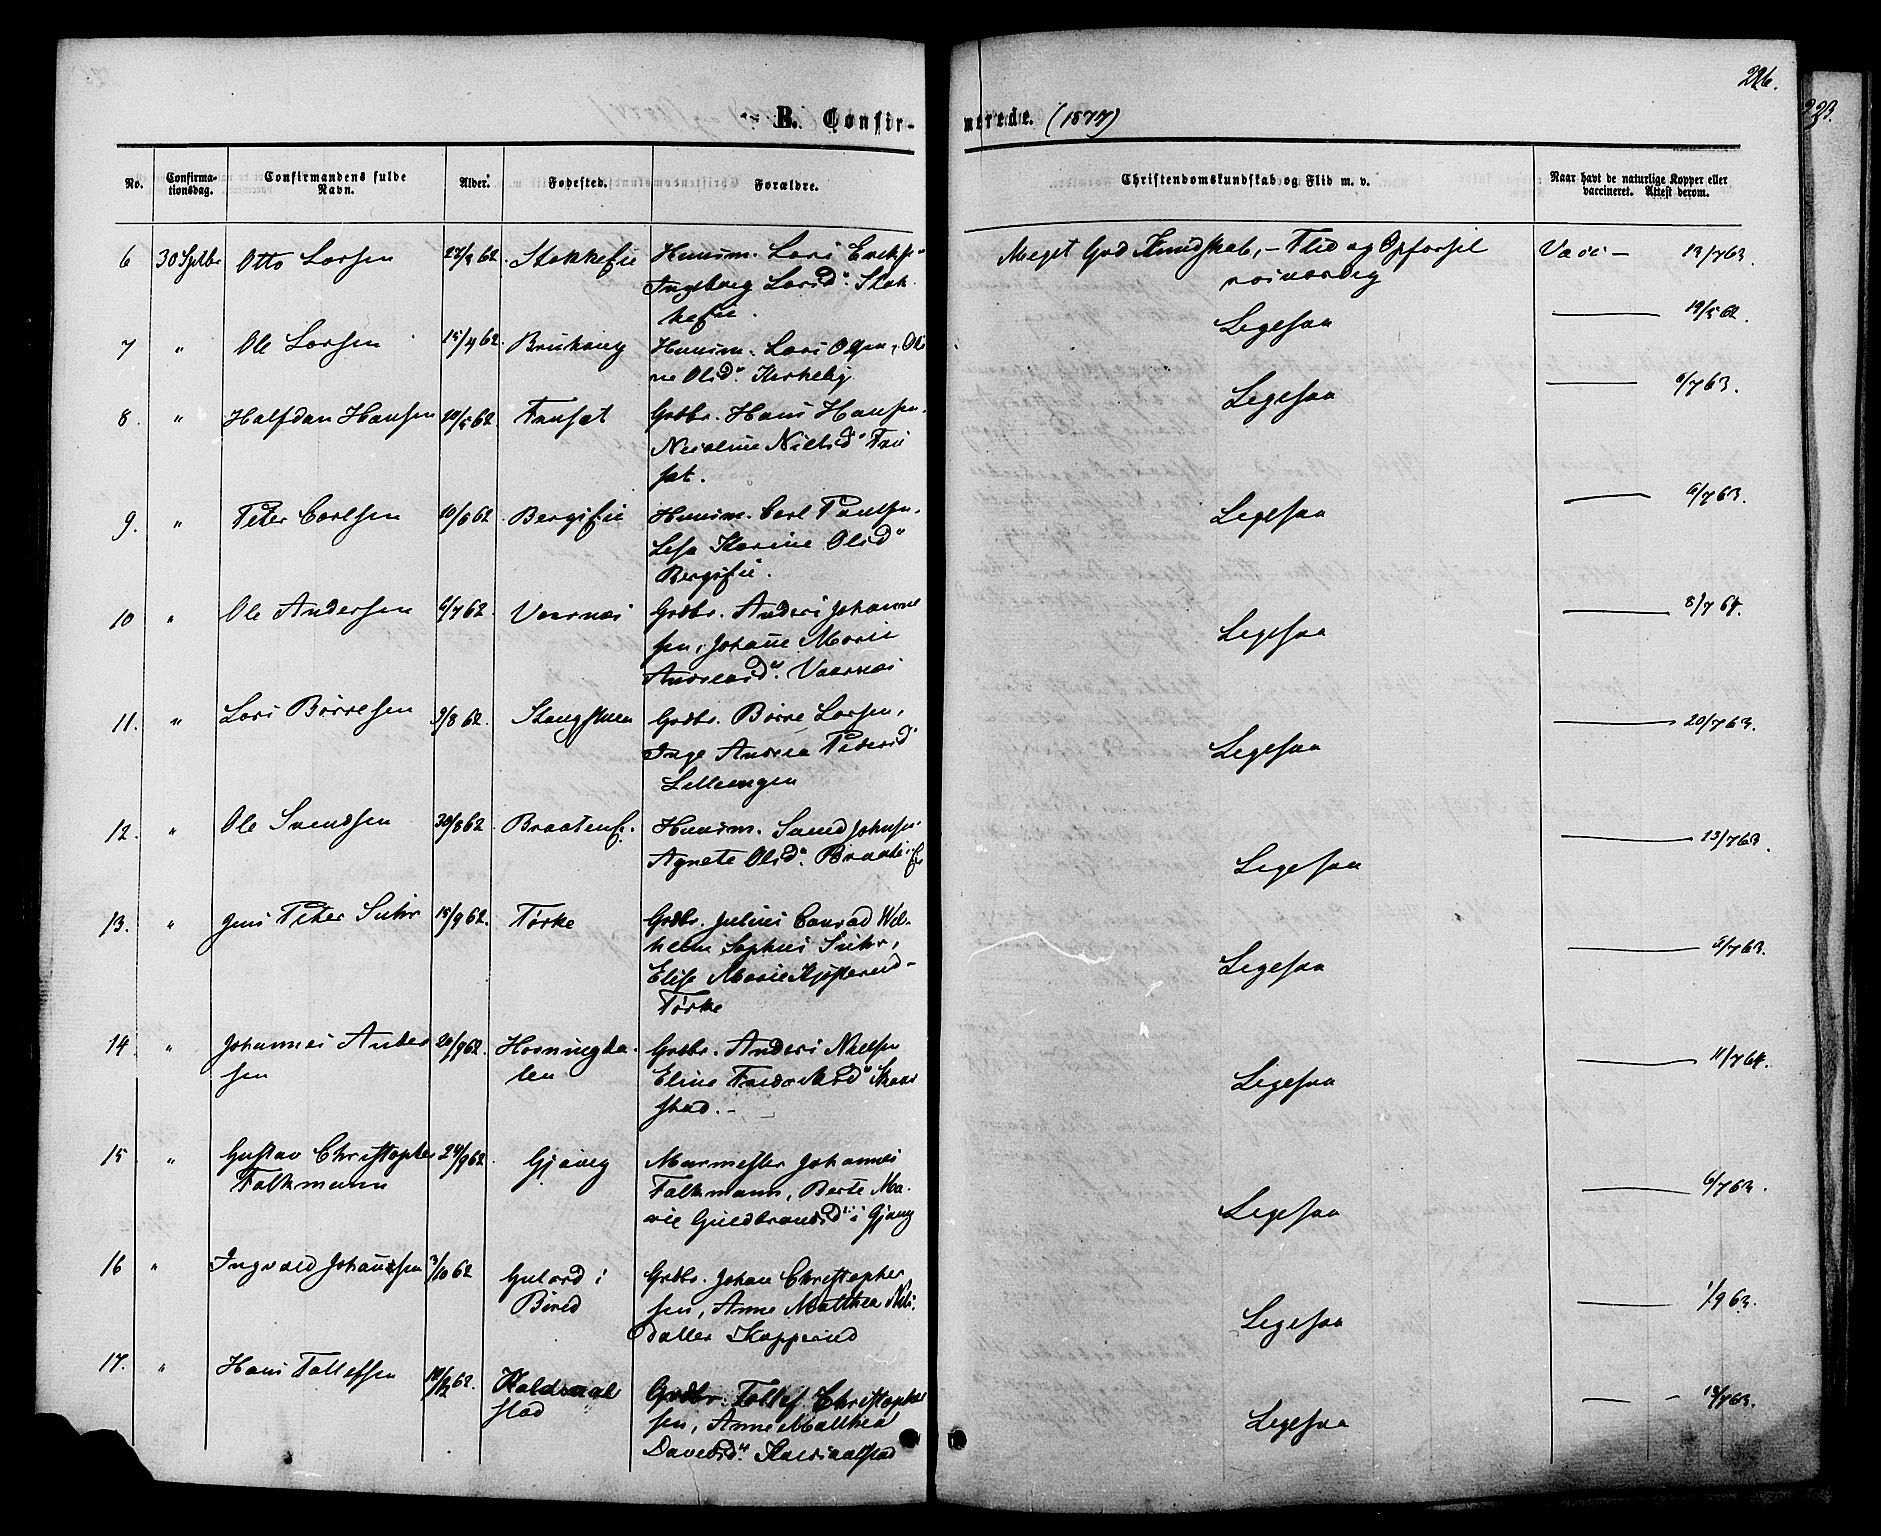 226.
223.
B. Confir-
merede. (1877)
No.
Confirma-
tionsdag.
Confirmandens fulde
Navn.
Alder.
Fødested.
Forældre.
Christendomskundskab og Flid m. v.
Naar havt de naturlige Kopper eller
vaccineret. Attest derom.
6 30 Septbr Otto Larsen 27/3 62. Stokkeeie Huusm. Lars Eriksen
Ingeborg Larsd". Stok-
keeie.
Meget God Kundskab, - Flid og Opførsel
roesværdig
Vacc - 13/7 63.
7 " Ole Larsen 15/4 62. Huusm. Lars Olsen, Oli
ne Olsd". Kirkeby
Ligesaa 19/5 62.
8. " Halfdan Hansen 10/5 62. Grdbr. Hans Hansen.
Nicoline Nielsd"
Ligesaa 6/7 63.
9. " Peter Carlsen 10/6 62 Bergseie Huusm. Carl Paulsen.
Lisa Karine Olsd"
Bergseie.
Ligesaa 6/7 63.
10 " Ole Andersen 6/7 62. Vaarnæs Grdbr. Anders Johanne
sen, Johane Marie
Andreasd". Vaarnæs
Ligesaa 8/7 64.
11. " Lars Børresen 9/8 62. Grdbr. Børre Larsen,
Inge Andrea Pedersd"
Lilleengen
Ligesaa 20/7 63.
12. " Ole Svendsen 30/8 62. Braatene. Huusm. Svend Johnsen.
Agnete Olsd".
Ligesaa 13/7 63.
13. " Jens Peter Suhr 15/9 62. Tørke Grdbr. Julius Conrad Wil-
helm Sophus Suhr,
Elise Marie
Tørke
Ligesaa 6/7 63.
14. " Johannes Ander
sen 20/9 62. Horningda-
len Grdbr. Anders Nielsen
Eline Fredriksd"
stad. -
Ligesaa 11/7 64.
15 " Gustav Christopher
Falkmann 24/9 62 Gjøvig Murmester Johannes
Falkmann, Berte Ma-
rie Guldbrandsd" i Gjøvig
Ligesaa 6/7 63.
16 " Ingvald Johansen 3/10 62 i
Bired Grdbr. Johan Christopher
sen, Anne Malthea Nils
datter
Ligesaa 1/9 63.
17. " Hans Tollefsen 62. Grdbr. Tollef Christopher
sen, Anne Malthea
Davidsd".
Ligesaa 63.